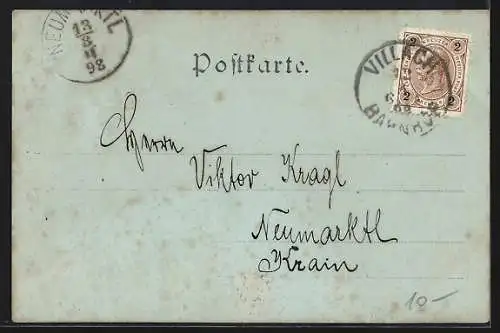 NEUMARKTL
13
8
98
2 2
VILLACH
BAHNHOF
2 2
Postkarte.
Herrn
Viktor Kragl
Neumarktl
Krain
10-